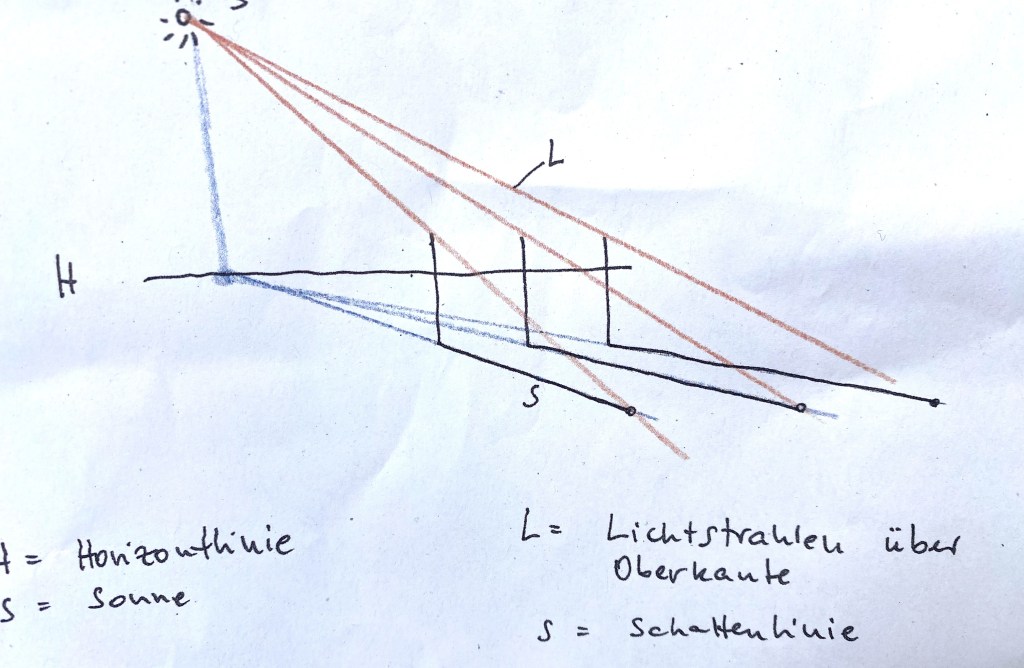 L
H
s
H = Horizontlinie
S = Sonne
L = Lichtstrahlen über
Oberkante
s = Schattenlinie